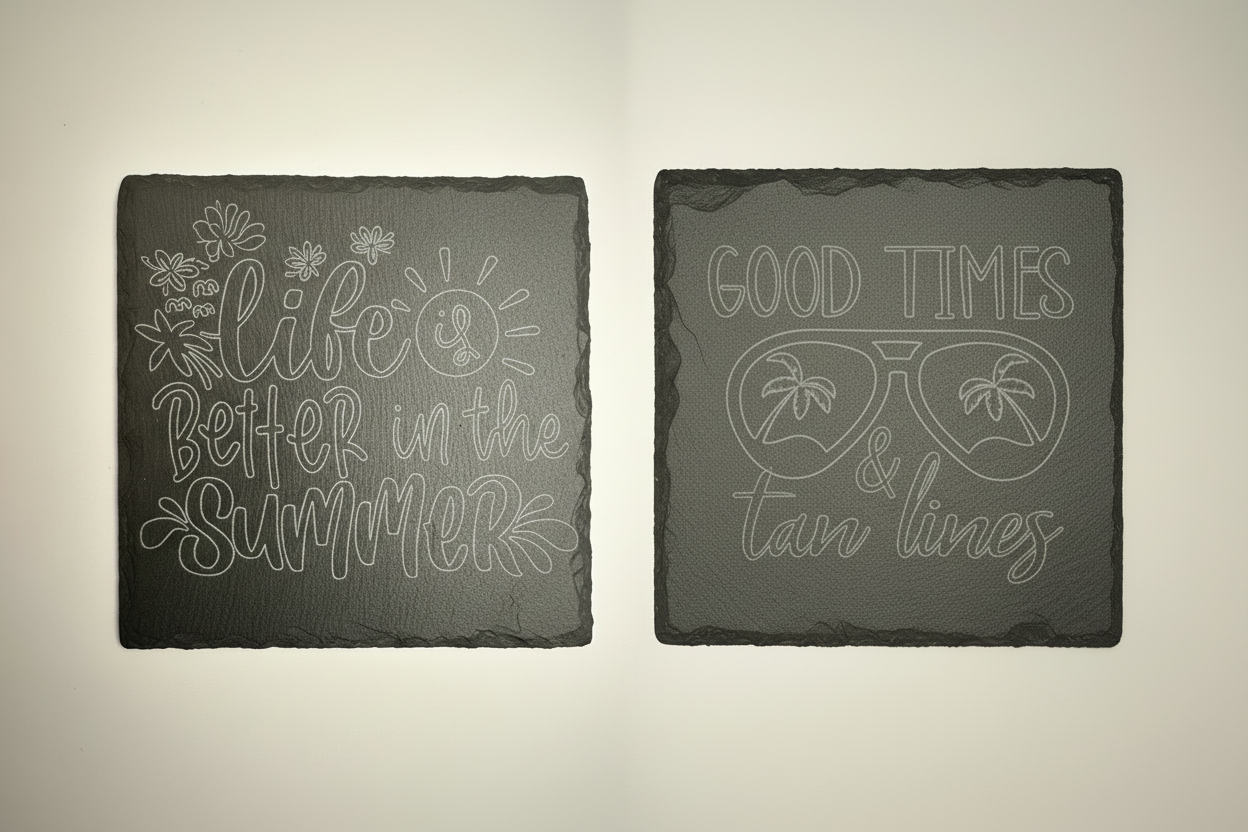 life is
Better in the
Summer
GOOD TIMES
&
tan lines